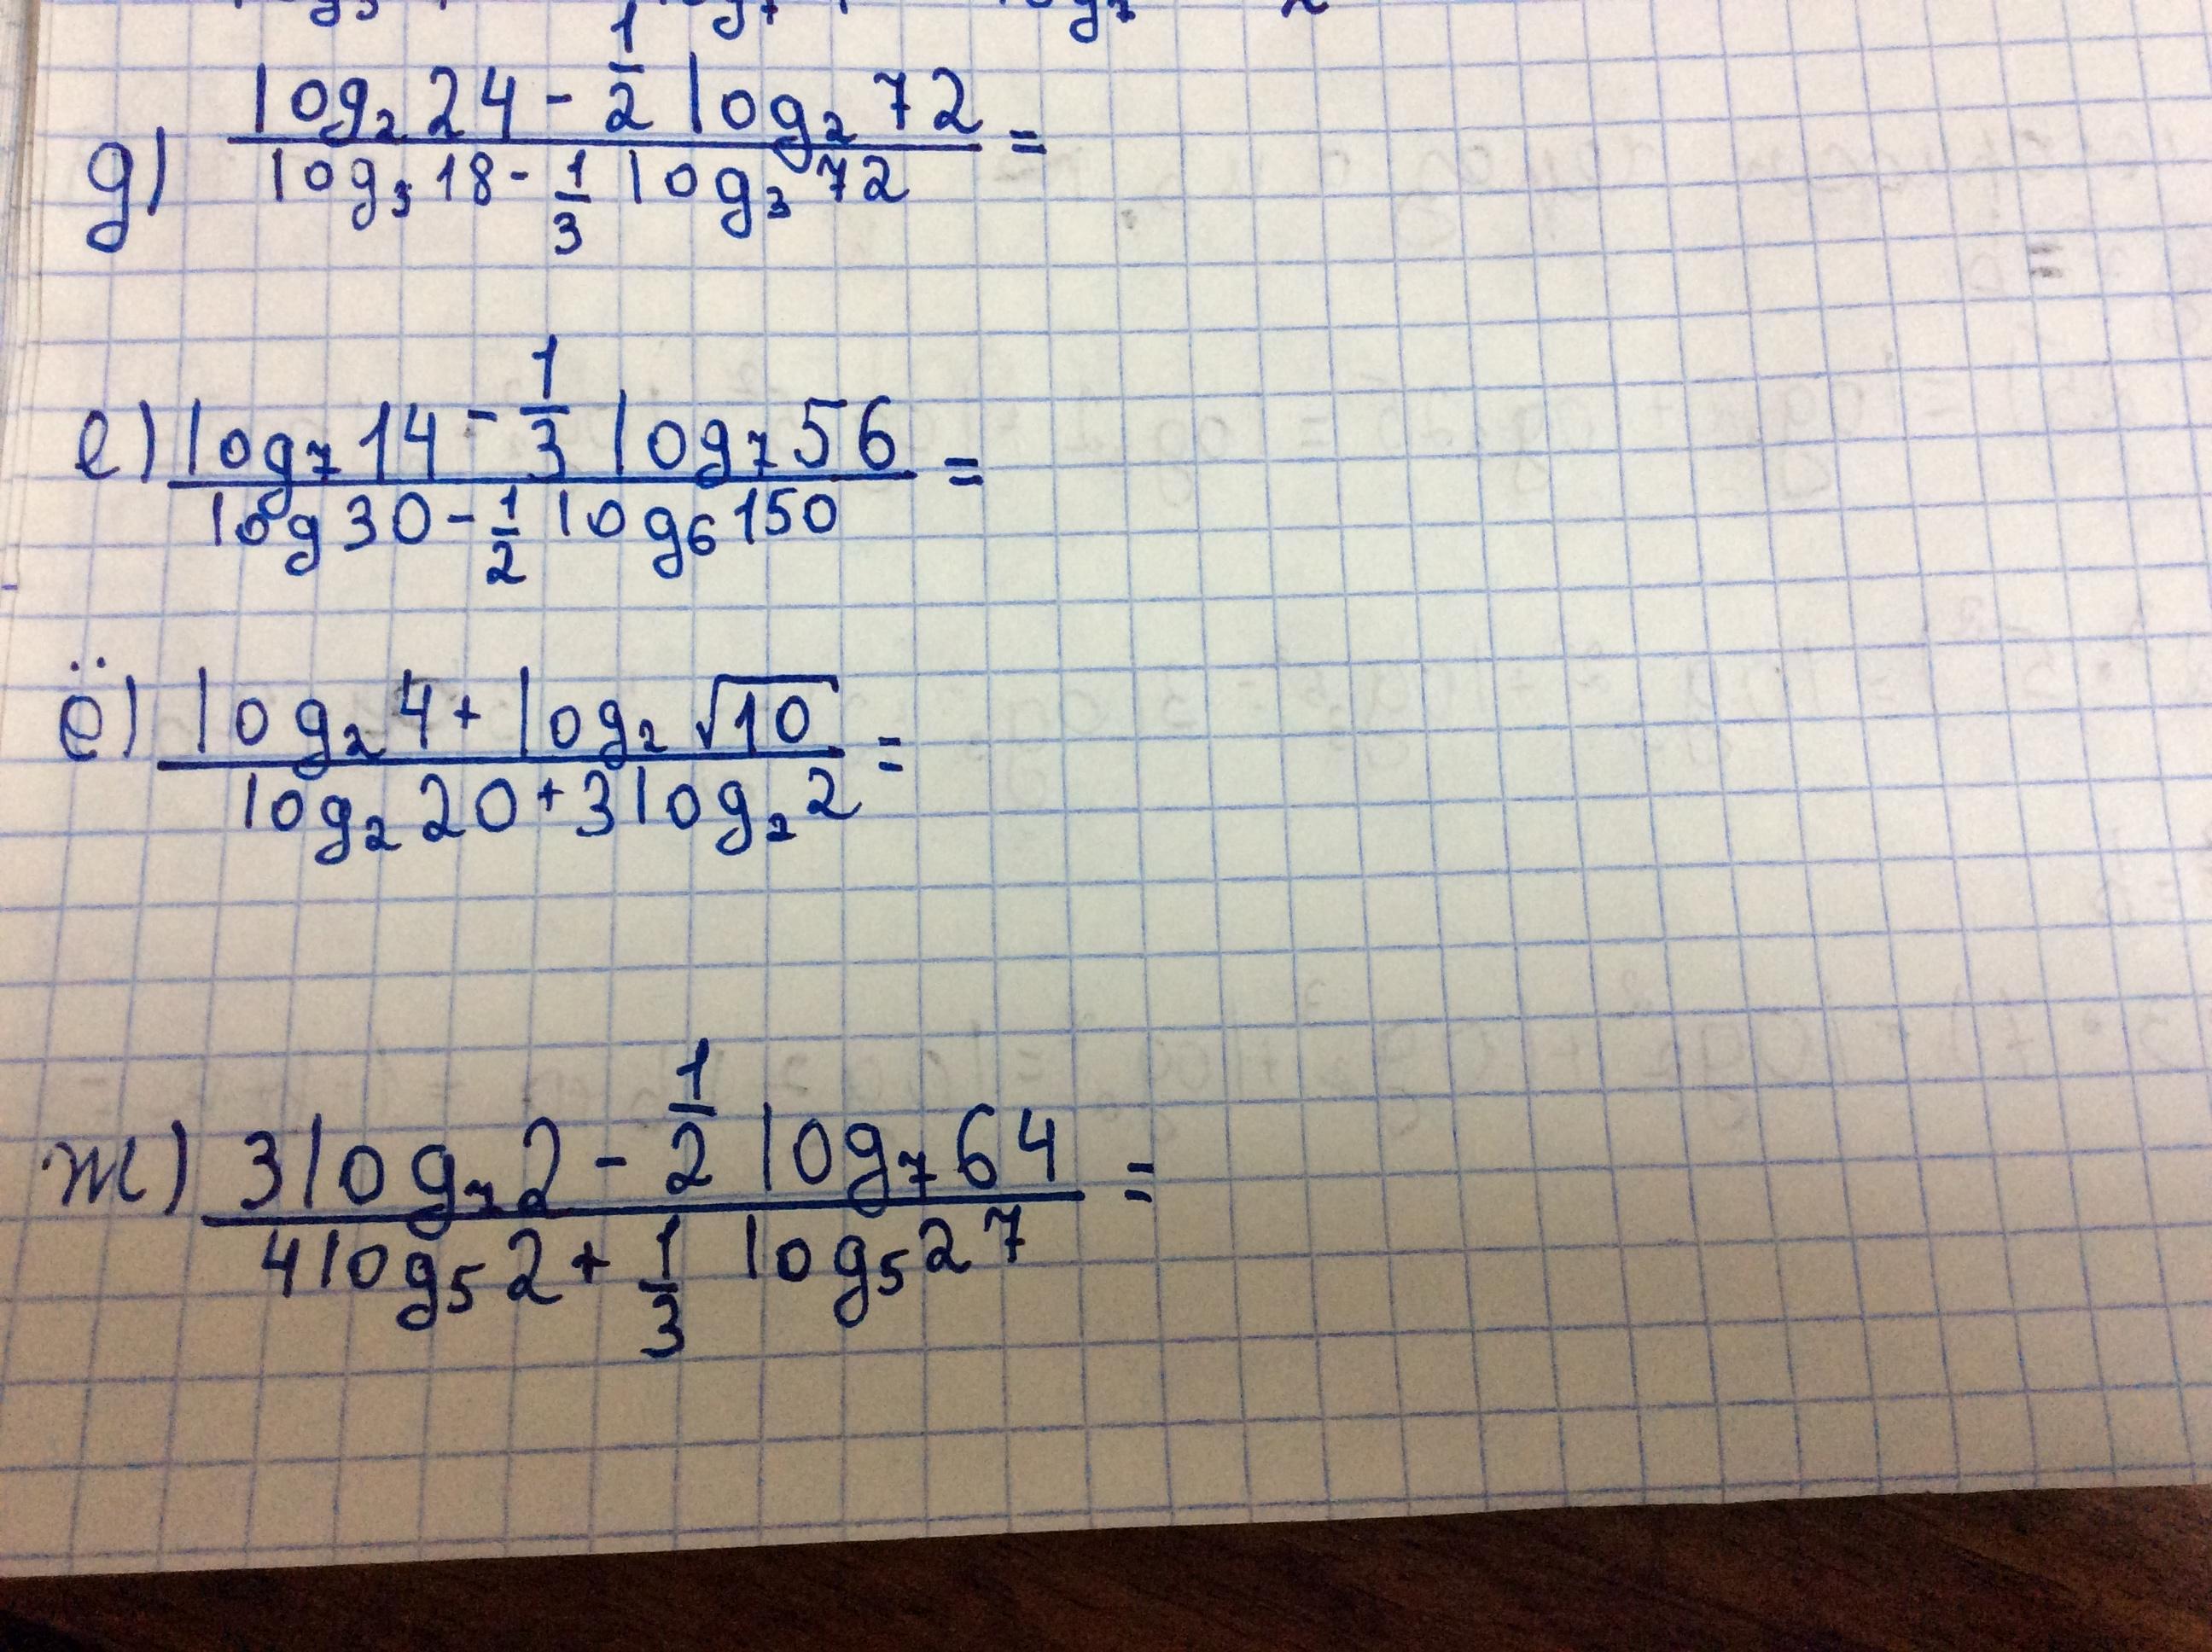 д) (log₂ 24 - 1/2 log₂ 72) / (log₃ 18 - 1/3 log₃ 72) =
е) (log₇ 14 - 1/3 log₇ 56) / (log 30 - 1/2 log₆ 150) =
ё) (log₂ 4 + log₂ √10) / (log₂ 20 + 3 log₂ 2) =
ж) (3 log₇ 2 - 1/2 log₇ 64) / (4 log₅ 2 + 1/3 log₅ 27) =